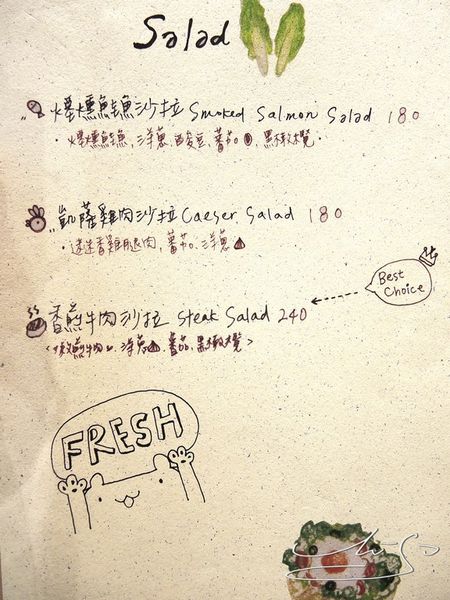 Salad
煙燻鮭魚沙拉 Smoked Salmon Salad 180
・煙燻鮭魚,洋蔥,酸豆,蕃茄,黑橄欖・
凱薩雞肉沙拉 Caeser Salad 180
・迷迭香雞腿肉,蕃茄,洋蔥
Best
Choice
香煎牛肉沙拉 Steak Salad 240
<煎牛肉,洋蔥,蕃茄,黑橄欖>
FRESH